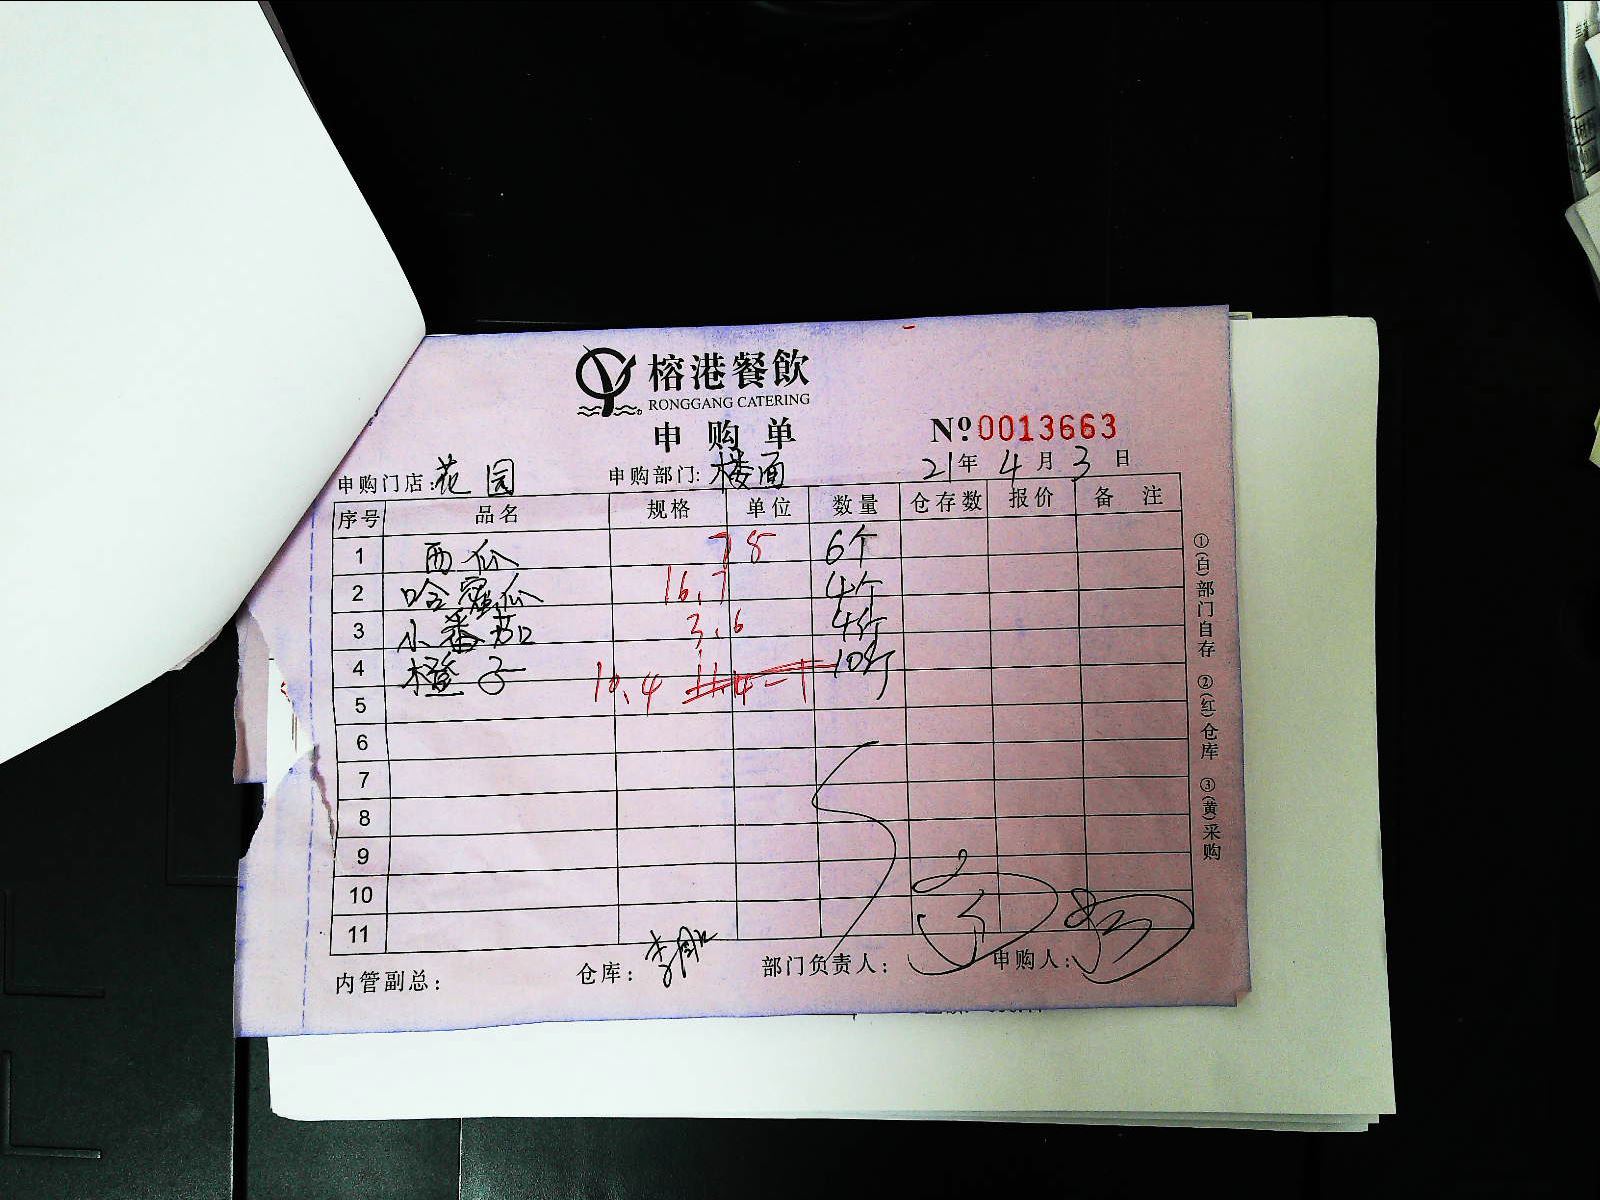 榕港餐飲
RONGGANG CATERING
申购单 Nº0013663
申购门店:花园 申购部门:楼面 21年4月3日
序号 品名 规格 单位 数量 仓存数 报价 备注
1 西瓜 7 8 6个
2 哈密瓜 16.7 4个
3 小番茄 3.6 4斤
4 橙子 10.4 11.4-1 10斤
5
6
7
8
9
10
11
内管副总: 仓库: 部门负责人: 申购人:
①(白)部门自存 ②(红)仓库 ③(黄)采购